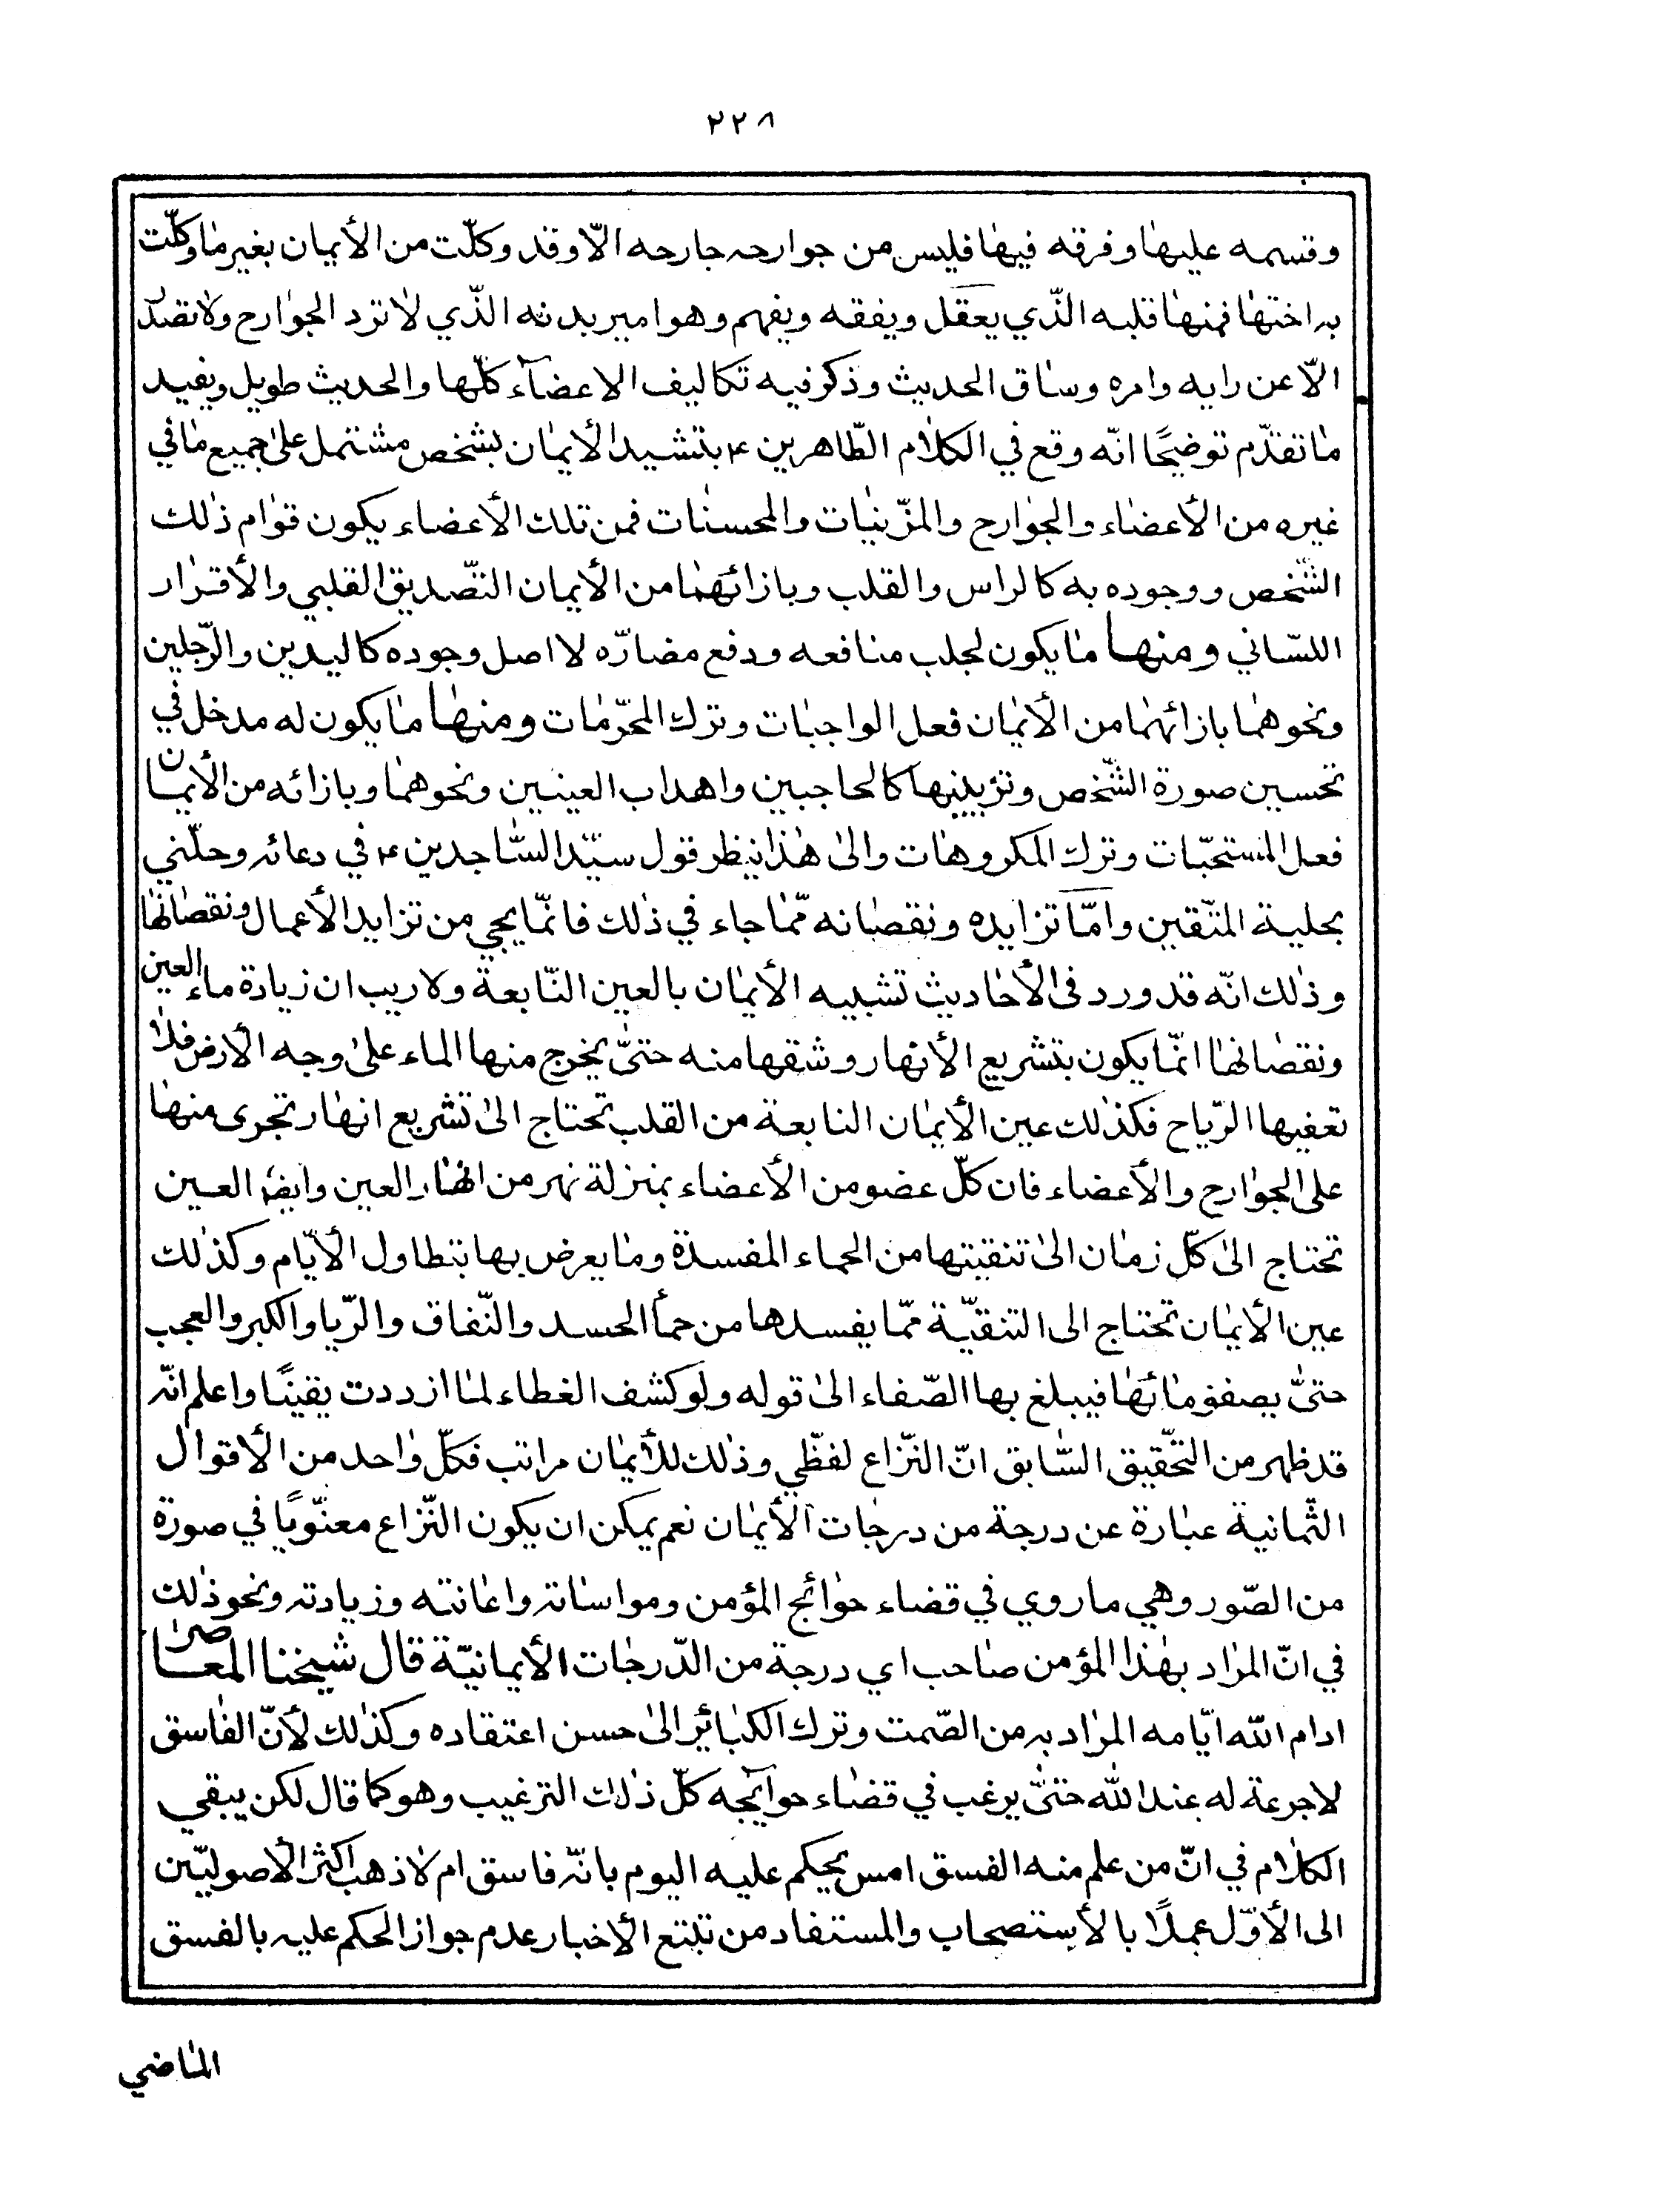 ٢٢٨
وقسمه عليها وفرقه فيها فليس من جوارحه جارحه الّا وقد وكلّت من الأيمان بغير ما وكلّت
به اختها فمنها قلبه الذّي يعقل ويفقه ويفهم وهو امير بدنه الذّي لا ترد الجوارح ولا تصّد
الّا عن رايه وامره وساق الحديث وذكر فيه تكاليف الاعضآء كلّها والحديث طويل ويفيد
ما تقدّم توضيحًا انّه وقع في الكلام الطّاهرين ع بتشيد الأيمان بشخص مشتمل على جميع ما في
غيره من الأعضاء والجوارح والمزّينات والمحسنات فمن تلك الأعضاء يكون قوام ذلك
الشّخص ووجوده به كالراس والقلب وبازائهما من الأيمان التّصديق القلبي والأقرار
اللسّاني ومنها ما يكون لجلب منافعه ودفع مضارّه لا اصل وجوده كاليدين والرّجلين
ونحوهما بازائهما من الأيمان فعل الواجبات وترك المحرّمات ومنها ما يكون له مدخل في
تحسين صورة الشّخص وتزيينها كالحاجبين واهداب العينين ونحوهما وبازائه من الأيمان
فعل المستحبّات وترك المكروهات والى هذا ينظر قول سيّد السّاجدين ع في دعائه وحلّني
بحلية المتّقين وامّا تزايده ونقصانه ممّا جاء في ذلك فانّما يجي من تزايد الأعمال ونقصانها
وذلك انّه قد ورد في الأحاديث تشبيه الأيمان بالعين النّابعة ولا ريب ان زيادة ماء العين
ونقصانها انّما يكون بتشريع الأنهار وشقها منه حتىّ يخرج منها الماء على وجه الأرض فلا
تعفيها الرّياح فكذلك عين الأيمان النابعة من القلب تحتاج الى تشريع انهار تجرى منها
على الجوارح والأعضاء فان كلّ عضو من الأعضاء بمنزلة نهر من انهار العين وايضا العين
تحتاج الى كلّ زمان الى تنقيتها من الحماء المفسدة وما يعرض بها بتطاول الأيّام وكذلك
عين الأيمان تحتاج الى التنقيّة ممّا يفسدها من حمأ الحسد والنّفاق والرّيا والكبر والعجب
حتىّ يصفو مائها فيبلغ بها الصّفاء الى قوله ولو كشف الغطاء لما ازددت يقينًا واعلم انّه
قد ظهر من التحّقيق السّابق انّ النزّاع لفظّي وذلك للأيمان مراتب فكلّ واحد من الاقوال
الثّمانية عبارة عن درجة من درجات الأيمان نعم يمكن ان يكون النّزاع معنّويًا في صورة
من الصّور وهي ما روي في قضاء حوائج المؤمن ومواساته واعانته وزيادته ونحو ذلك
في انّ المراد بهذا المؤمن صاحب اي درجة من الدّرجات الأيمانيّة قال شيخنا المعاصر
ادام الله ايّامه المراد به من الصّمت وترك الكبائر الى حسن اعتقاده وكذلك لأنّ الفاسق
لا جرعة له عند الله حتىّ يرغب في قضاء حوآئجه كلّ ذلك الترغيب وهو كما قال لكن يبقي
الكلام في انّ من علم منه الفسق امس يحكم عليه اليوم بانّه فاسق ام لا ذهب اكثر الأصوليّين
الى الأوّل عملًا بالأستصحاب والمستفاد من تتبّع الأخبار عدم جواز الحكم عليه بالفسق
الماضي